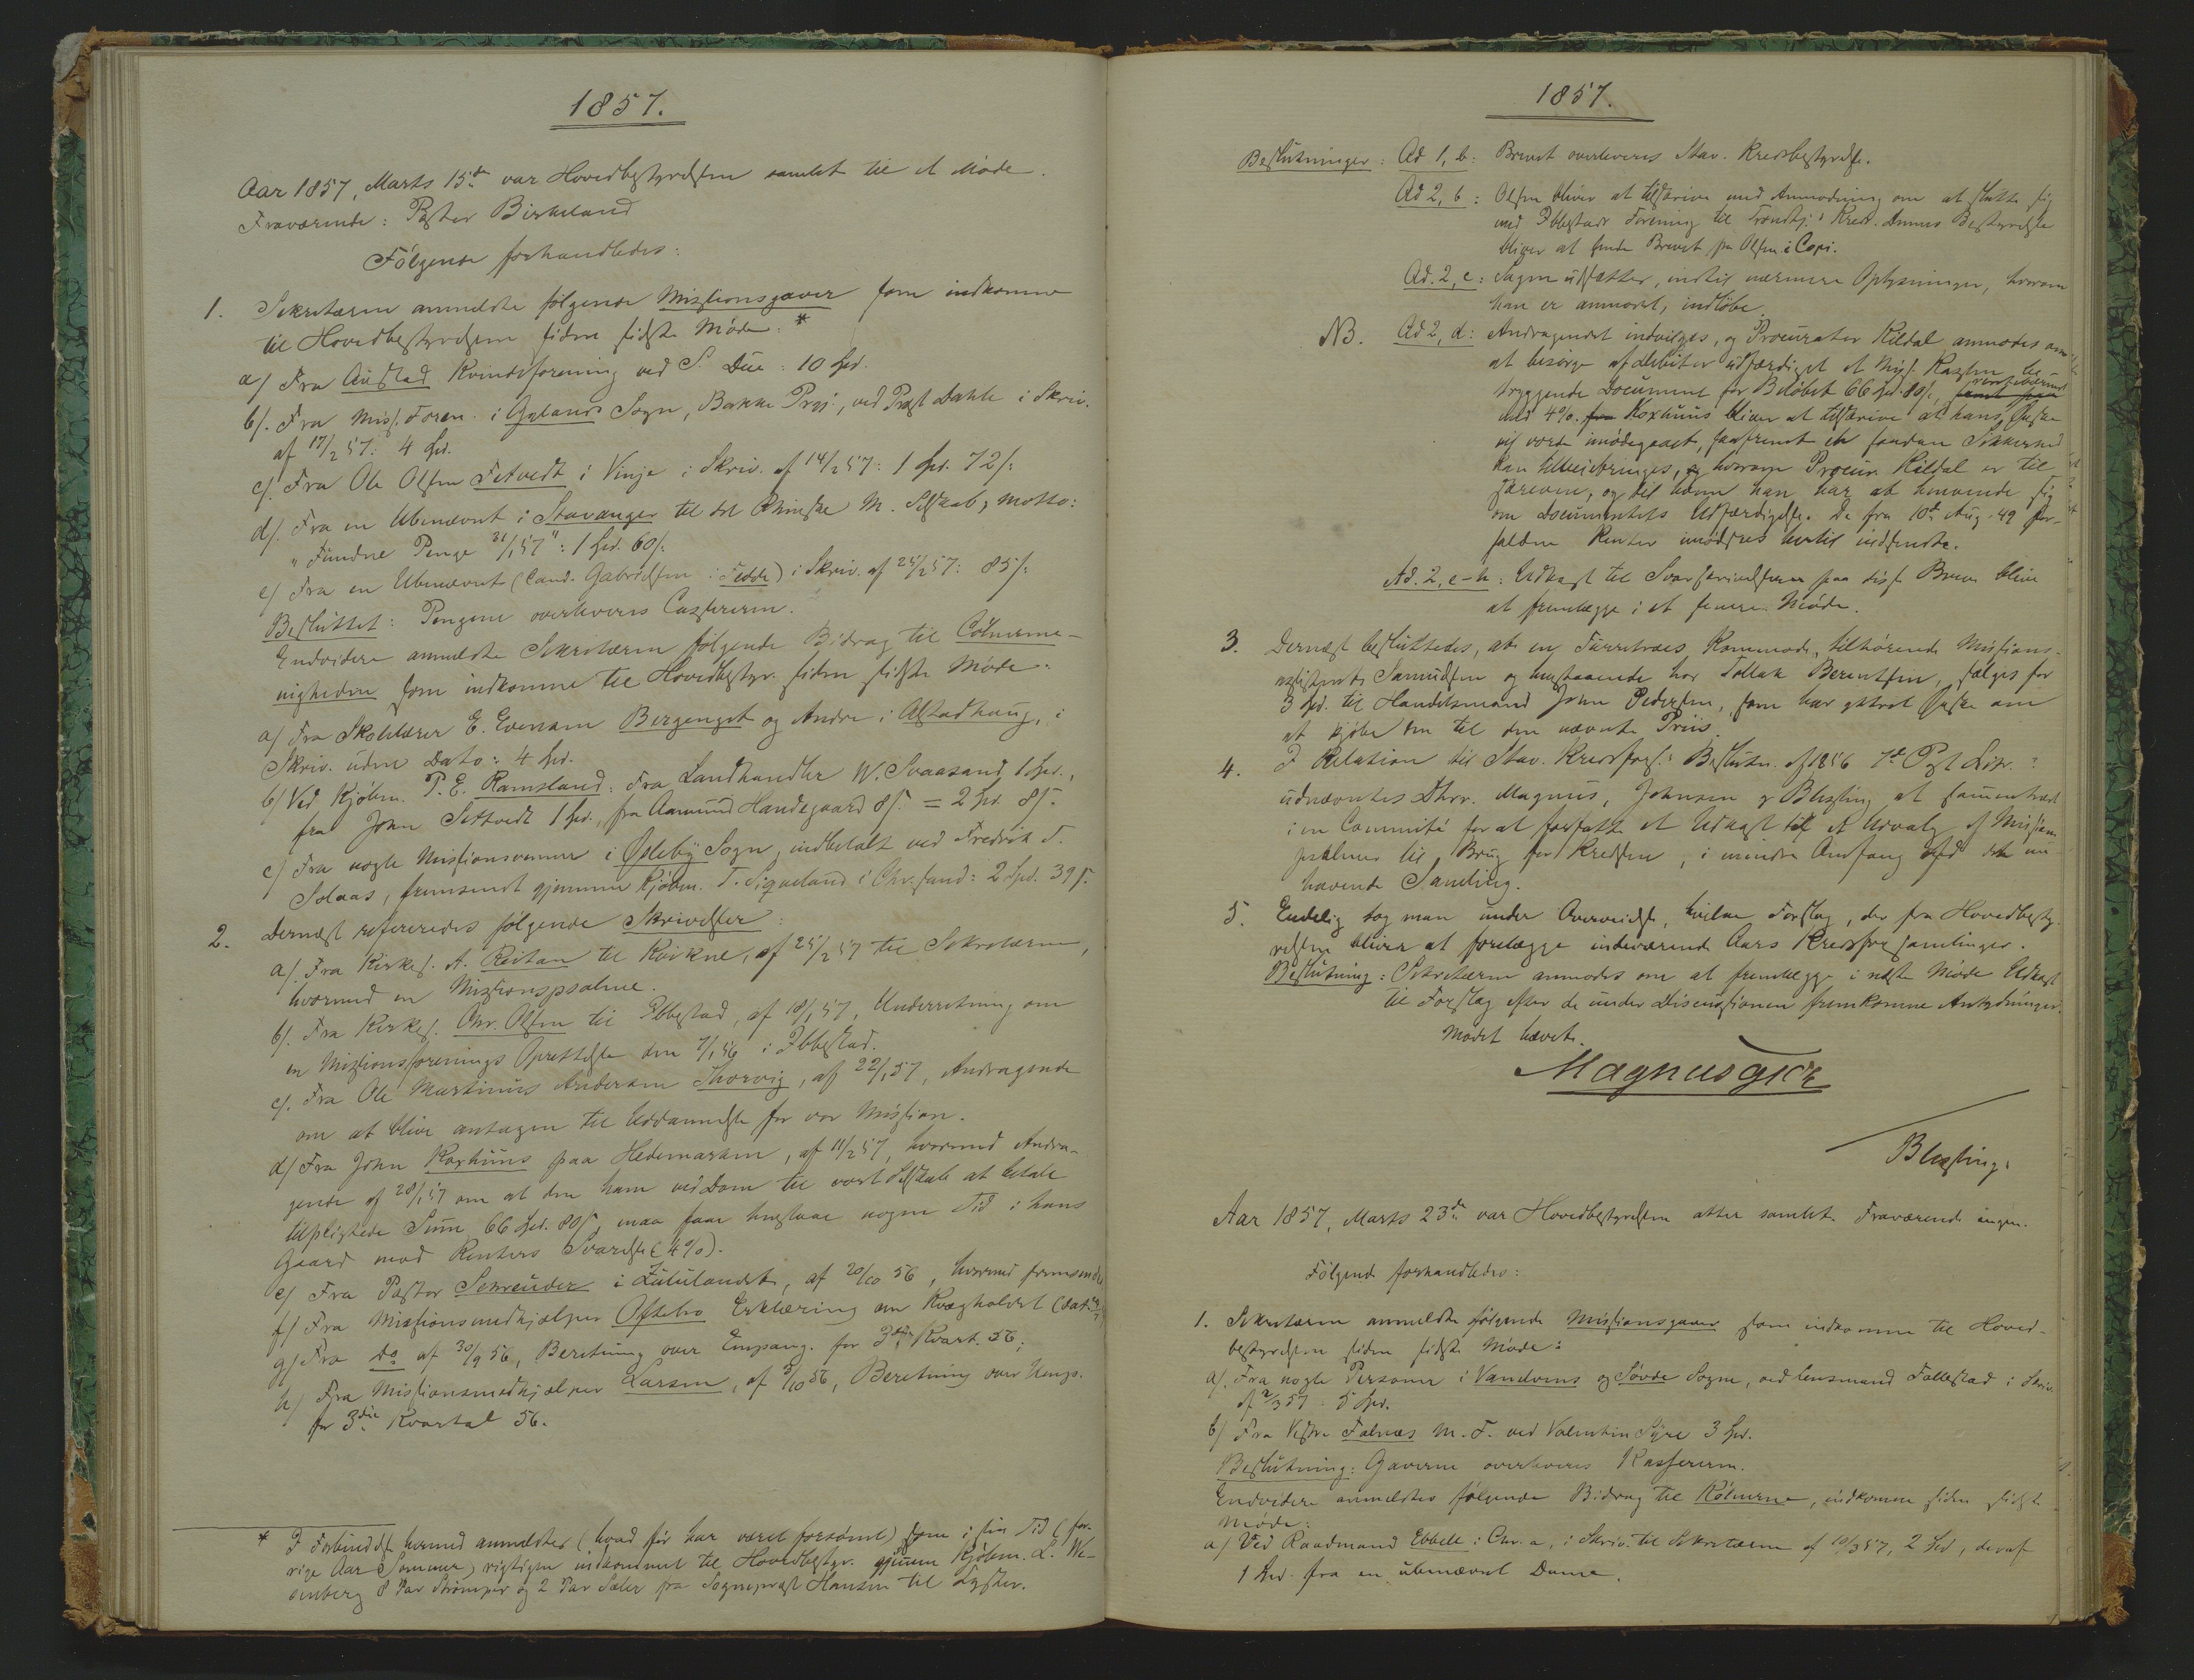 1857.
Aar 1857, Marts 15de var Hovedbestyrelsen samlet til et Møde.
Fraværende: Pastor Birkeland
Følgende forhandledes:
1. Sekretæren anmeldte følgende Missionsgaver som indkomne
til Hovedbestyrelsen siden sidste Møde: *
a/ Fra Austad Kvindeforening ved S. Due: 10 Spd.
b/. Fra Miss. Foren. i Gyland Sogn, Bakke Prgj., ved Præst Dahle i Skriv.
af 17/2 57: 4 Spd.
c/. Fra Ole Olsen Fetvedt i Vinje i Skriv. af 14/2 57: 1 Spd. 72 /:
d/. Fra en Ubenævnt i Stavanger til det Chinesiske M. Selskab, Motto:
"Fundne Penge 31/1 57": 1 Spd. 60 /:
e/ Fra en Ubenævnt (Cand. Gabrielsen i Fedde) i Skriv. af 25/2 57: 85 /:
Besluttet: Pengene overleveres Casereren.
Endvidere anmeldte Sekretæren følgende Bidrag til Collurene-
nigheden som indkomne til Hovedbestyr. siden sidste Møde:
a/ Fra Skolelærer E. Evensen Bergenget og Andre i Alstadhaug, i
Skriv. uden Dato: 4 Spd.
b/ Ved Kjøbm. P. E. Ramsland: Fra Landhandler W. Svaasand 1 Spd.,
fra John Settvedt 1 Spd., fra Aamund Handegaard 8 /: = 2 Spd. 8 /:
c/ Fra nogle Missionsvenner i Øsleby Sogn, indbetalt ved Fredrik T.
Solaas, fremsendt gjennem Kjøbm. T. Siqveland i Chr.sand: 2 Spd. 39 /:
2. Dernæst refereredes følgende Skrivelser:
a/. Fra Kirkes. A. Reitan til Kvikne, af 25/2 57 til Sekretæren,
hvormed en Missionspsalme.
b/. Fra Kirkes. Chr. Olsen til Ibbestad, af 18/1 57, Underretning om
en Missionsforenings Oprettelse den 7/1 56 i Ibbestad.
c/. Fra Ole Martinus Andersen Thorvig, af 22/1 57, Andragende
om at blive antagen til Uddannelse for vor Mission.
d/ Fra John Korshuus paa Hedemarken, af 11/2 57, hvormed Andra-
gende af 28/1 57 om at den ham ved Dom til vort Selskab at betale
tilpligtede Sum 66 Spd. 80 /, maa faae henstaae nogen Tid i hans
Gaard mod Renters Svarelse (4%).
e/ Fra Pastor Schreuder i Zululandet, af 20/10 56, hvormed fremsendes
f/ Fra Missionsmedhjælper Oftebro Erklæring om Kvægholdet
g/ Fra Do af 30/9 56, Beretning over Empang. for 3die Kvart. 56;
h/ Fra Missionsmedhjælper Larsen, af 5/10 56, Beretning over Umps.
for 3die Kvartal 56.
* I Forbindelse hermed anmeldtes (hvad før har været forsømt) som i sin Tid (for-
rige Aar Sommer) rigtigen indkommet til Hovedbestyr. gjennem Kjøbm. L. We-
senberg 8 Par Strømper og 2 Par Saler fra Sogneprest Hansen til Lyster.
1857.
Beslutninger: Ad 1, b: Brevet overleveres Stav. Kredsbestyrelse.
Ad 2, b: Olsen bliver at tilskrive med Anmodning om at slutte sig
med Ibbestads Forening til Trondhj.s Kreds. Dennes Bestyrelse
bliver at sende Brevet fra Olsen i Copi.
Ad. 2, c: Sagen udsættes, indtil nærmere Oplysninger, hvorom
han er anmodet, indløbe.
NB. Ad 2, d: Andragendet indvilges, og Procurator Kildal anmodes om
at besørge af Debitor udfærdiget et Miss. Kassen be-
tryggende Document for Beløbet 66 Spd. 80 /:,
med 4%. Korshuus bliver at tilskrive at hans Ønske
vil vorde imødegaaet, saafremt en saadan Sikkerhed
kan tilveiebringes, hvorom Procur. Kildal er til-
skreven, og til hvem han har at henvende sig
om Documentets Udfærdigelse. De fra 10de Aug. 49 for-
faldne Renter imødsees hertil indsendte.
Ad. 2, e-h: Udkast til Svarskrivelserne paa disse Breve blive
at fremlægge i et senere Møde.
3. Dernæst besluttedes, at en Furretræs Kommode, tilhørende Missions-
assistent Samuelsen og henstaaende hos Tollak Berentsen, sælges for
3 Spd. til Handelsmand John Pedersen, som har yttret Ønske om
at kjøbe den til den nævnte Priis.
4. I Relation til Stav. Kredsfors. Beslutn. af 1856 7de Post Litr.
udnævntes Dhrr. Magnus, Johnsen og Blessing at sammentræde
i en Committé for at forfatte et Udkast til et Udvalg af Missions-
psalmer til Brug for Kredsen, i mindre Omfang end den nu-
havende Samling.
5. Endelig tog man under Overveielse, hvilke Forslag, der fra Hovedbesty-
relsen bliver at forelægge indeværende Aars Kredsforsamlinger.
Beslutning: Sekretæren anmodes om at fremlægge i næste Møde Udkast
til Forslag efter de under Discussionen fremkomne Antydninger.
Mødet hævet.
Magnus
Blessing.
Aar 1857, Marts 23de var Hovedbestyrelsen atter samlet. Fraværende ingen.
Følgende forhandledes:
1. Sekretæren anmeldte følgende Missionsgaver som indkomne til Hoved-
bestyrelsen siden sidste Møde:
a/. Fra nogle Personer i Vanelvens og Søvde Sogne, ved Lensmand Fallestad i Skriv.
af 2/3 57: 5 Spd.
b/ Fra Vestre Falnæs M. F. ved Valentin Syre 3 Spd.
Beslutning: Gaverne overleveres Kassereren.
Endvidere anmeldtes følgende Bidrag til Kólurene, indkomne siden sidste
Møde:
a/ Ved Raadmand Ebbell i Chr.a, i Skriv. til Sekretæren af 10/3 57, 2 Spd., deraf
1 Spd. fra en ubenævnt Dame.